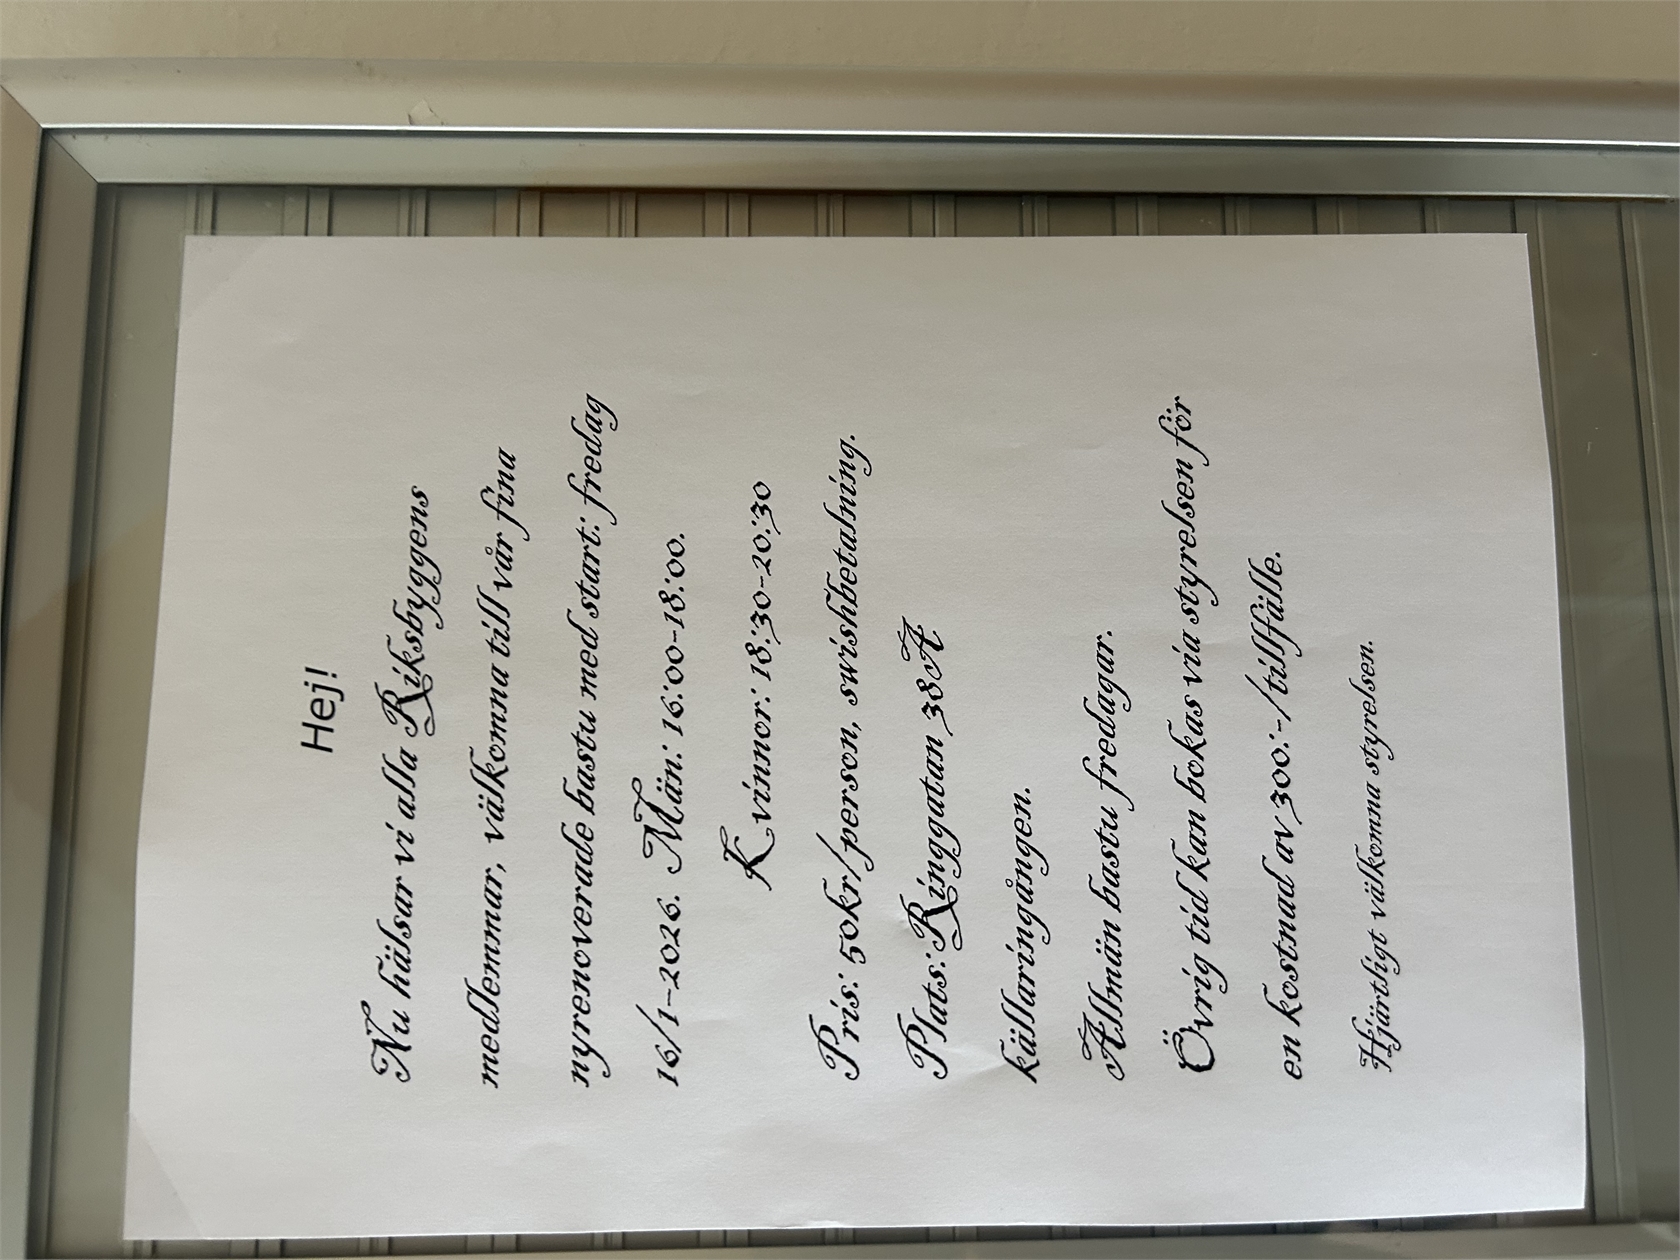 Hej!
Nu hälsar vi alla Riksbyggens
medlemmar, välkomna till vår fina
nyrenoverade bastu med start: fredag
16/1-2026. Män: 16:00-18:00.
Kvinnor: 18:30-20:30
Pris: 50kr/person, swishbetalning.
Plats: Ringgatan 38A
källaringången.
Allmän bastu fredagar.
Övrig tid kan bokas via styrelsen för
en kostnad av 300:-/tillfälle.
Hjärtligt välkomna styrelsen.